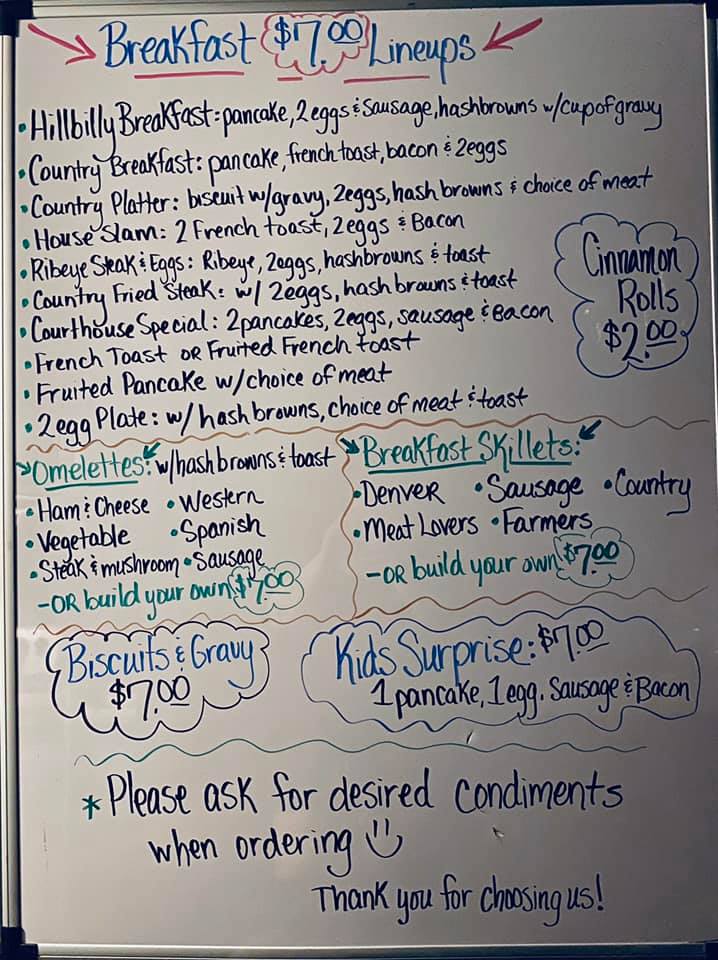 Breakfast $7.00 Lineups
• Hillbilly Breakfast: pancake, 2 eggs & Sausage, hashbrowns w/cup of gravy
• Country Breakfast: pancake, french toast, bacon & 2 eggs
• Country Platter: biscuit w/gravy, 2 eggs, hash browns & choice of meat
• House Slam: 2 French toast, 2 eggs & Bacon
• Ribeye Steak & Eggs: Ribeye, 2 eggs, hashbrowns & toast
• Country Fried Steak: w/ 2 eggs, hash browns & toast
• Courthouse Special: 2 pancakes, 2 eggs, sausage & Bacon
• French Toast OR Fruited French toast
• Fruited Pancake w/choice of meat
• 2 egg Plate: w/ hash browns, choice of meat & toast
Cinnamon
Rolls
$2.00
Omelettes: w/hash browns & toast
• Ham & Cheese • Western
• Vegetable • Spanish
• Steak & mushroom • Sausage
- OR build your own $7.00
Breakfast Skillets:
• Denver • Sausage • Country
• Meat Lovers • Farmers
- OR build your own $7.00
Biscuits & Gravy
$7.00
Kids Surprise: $7.00
1 pancake, 1 egg. Sausage & Bacon
* Please ask for desired condiments
when ordering
Thank you for choosing us!